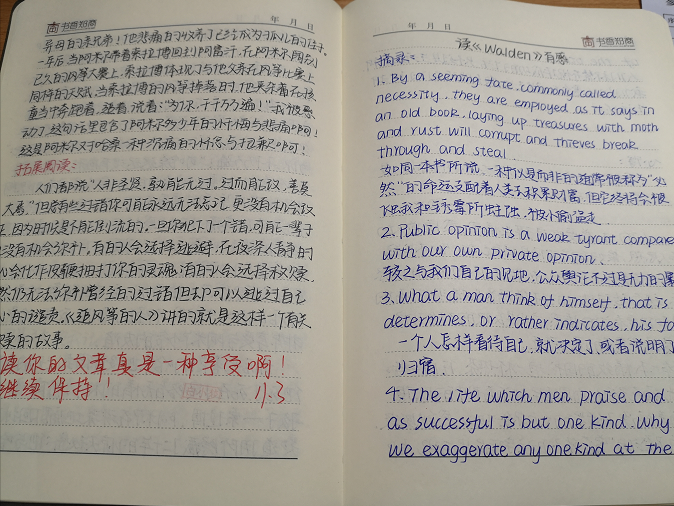 书香班商
年 月 日
异母的亲兄弟！他悲痛的收养了已经成为孤儿的侄子。
一年后当阿米尔带着索拉博回到阿富汗，在阿米尔
已久的风筝大赛上，索拉博体现了与他父亲在风筝比赛上
同样的天赋，当索拉博的风筝掉落时，他
童当中奔跑着，追着，说着：“为你，千千万万遍！”我被感
动了，这句话里包含了阿米尔多少年的忏悔与悲痛啊！
这是阿米尔对哈桑一种沉痛的
拓展阅读：
人们都说“人非圣贤，孰能无过。过而能改，善莫
大焉。”但有些过错你可能永远无法忘记，更没有机会改
正，因为时代是不能倒流的。一旦你犯下了一个错，可能一辈子
也没有机会弥补。有的人会选择逃避，在夜深人静的
心会化作皮鞭抽打你的灵魂；有的人会选择救赎，
然仍无法弥补曾经的过错但却可以逃过自己
心的谴责。《追风筝的人》讲的就是这样一个有关
救赎的故事。
读你的文章真是一种享受啊！
继续保持！ 11.3
年 月 日
书香班商
读《Walden》有感
摘录：
1. By a seeming fate, commonly called
necessity, they are employed, as it says in
an old book, laying up treasures with moth
and rust will corrupt and thieves break
through and steal.
如同一本书所说，一种似是而非的通常被称为“必
然”的命运支配着人类去积累财富，但它终将会被
蛀虫和铁霉所蛀蚀，被小偷盗走
2. Public opinion is a weak tyrant compare
with our own private opinion.
较之与我们自己的见地，公众舆论不过是无力的暴
3. What a man think of himself, that is
determines, or rather indicates, his fa
一个人怎样看待自己，就决定了，或者说明了
归宿.
4. The life which men praise and
as successful is but one kind. Why
we exaggerate any one kind at the